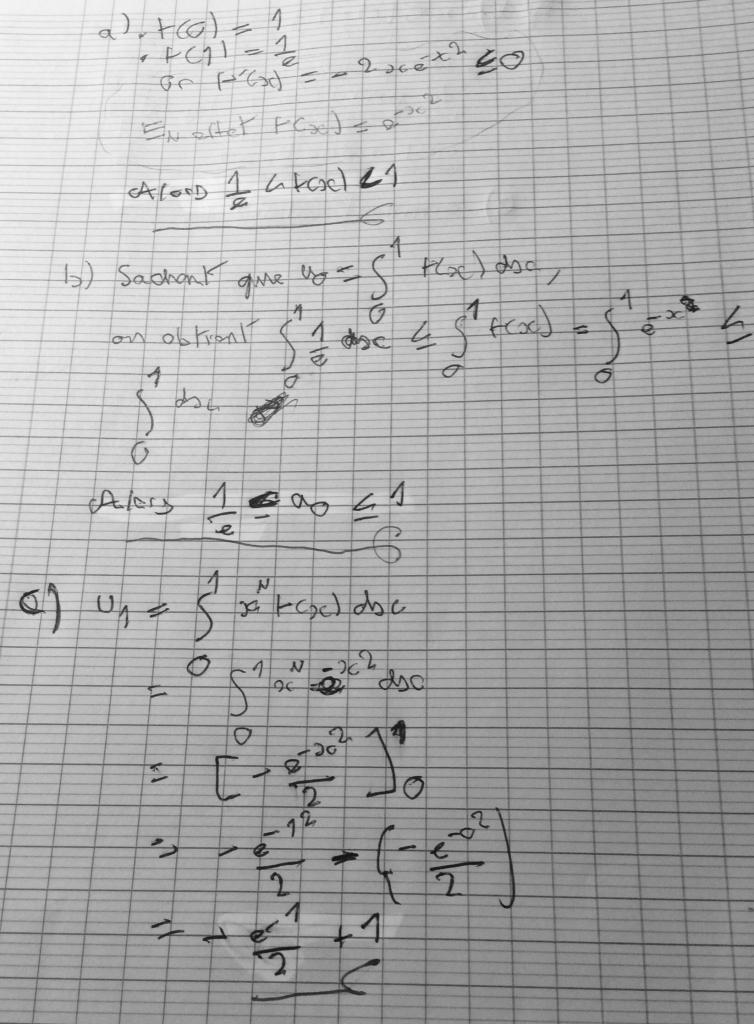 a) . f(0) = 1
. f(1) = 1/e
or f'(x) = -2xe^{-x^2} ≤ 0
EN effet f(x) = e^{-x^2}
Alors 1/e < f(x) < 1
b) Sachant que u_0 = ∫_0^1 f(x) dx,
on obtient ∫_0^1 1/e dx ≤ ∫_0^1 f(x) = ∫_0^1 e^{-x^2} ≤
∫_0^1 dx
Alors 1/e ≤ u_0 ≤ 1
c) U_1 = ∫_0^1 x^N f(x) dx
= ∫_0^1 x^N e^{-x^2} dx
= [- e^{-x^2}/2]_0^1
= - e^{-1^2}/2 - (- e^{-0^2}/2)
= - e^{-1}/2 + 1